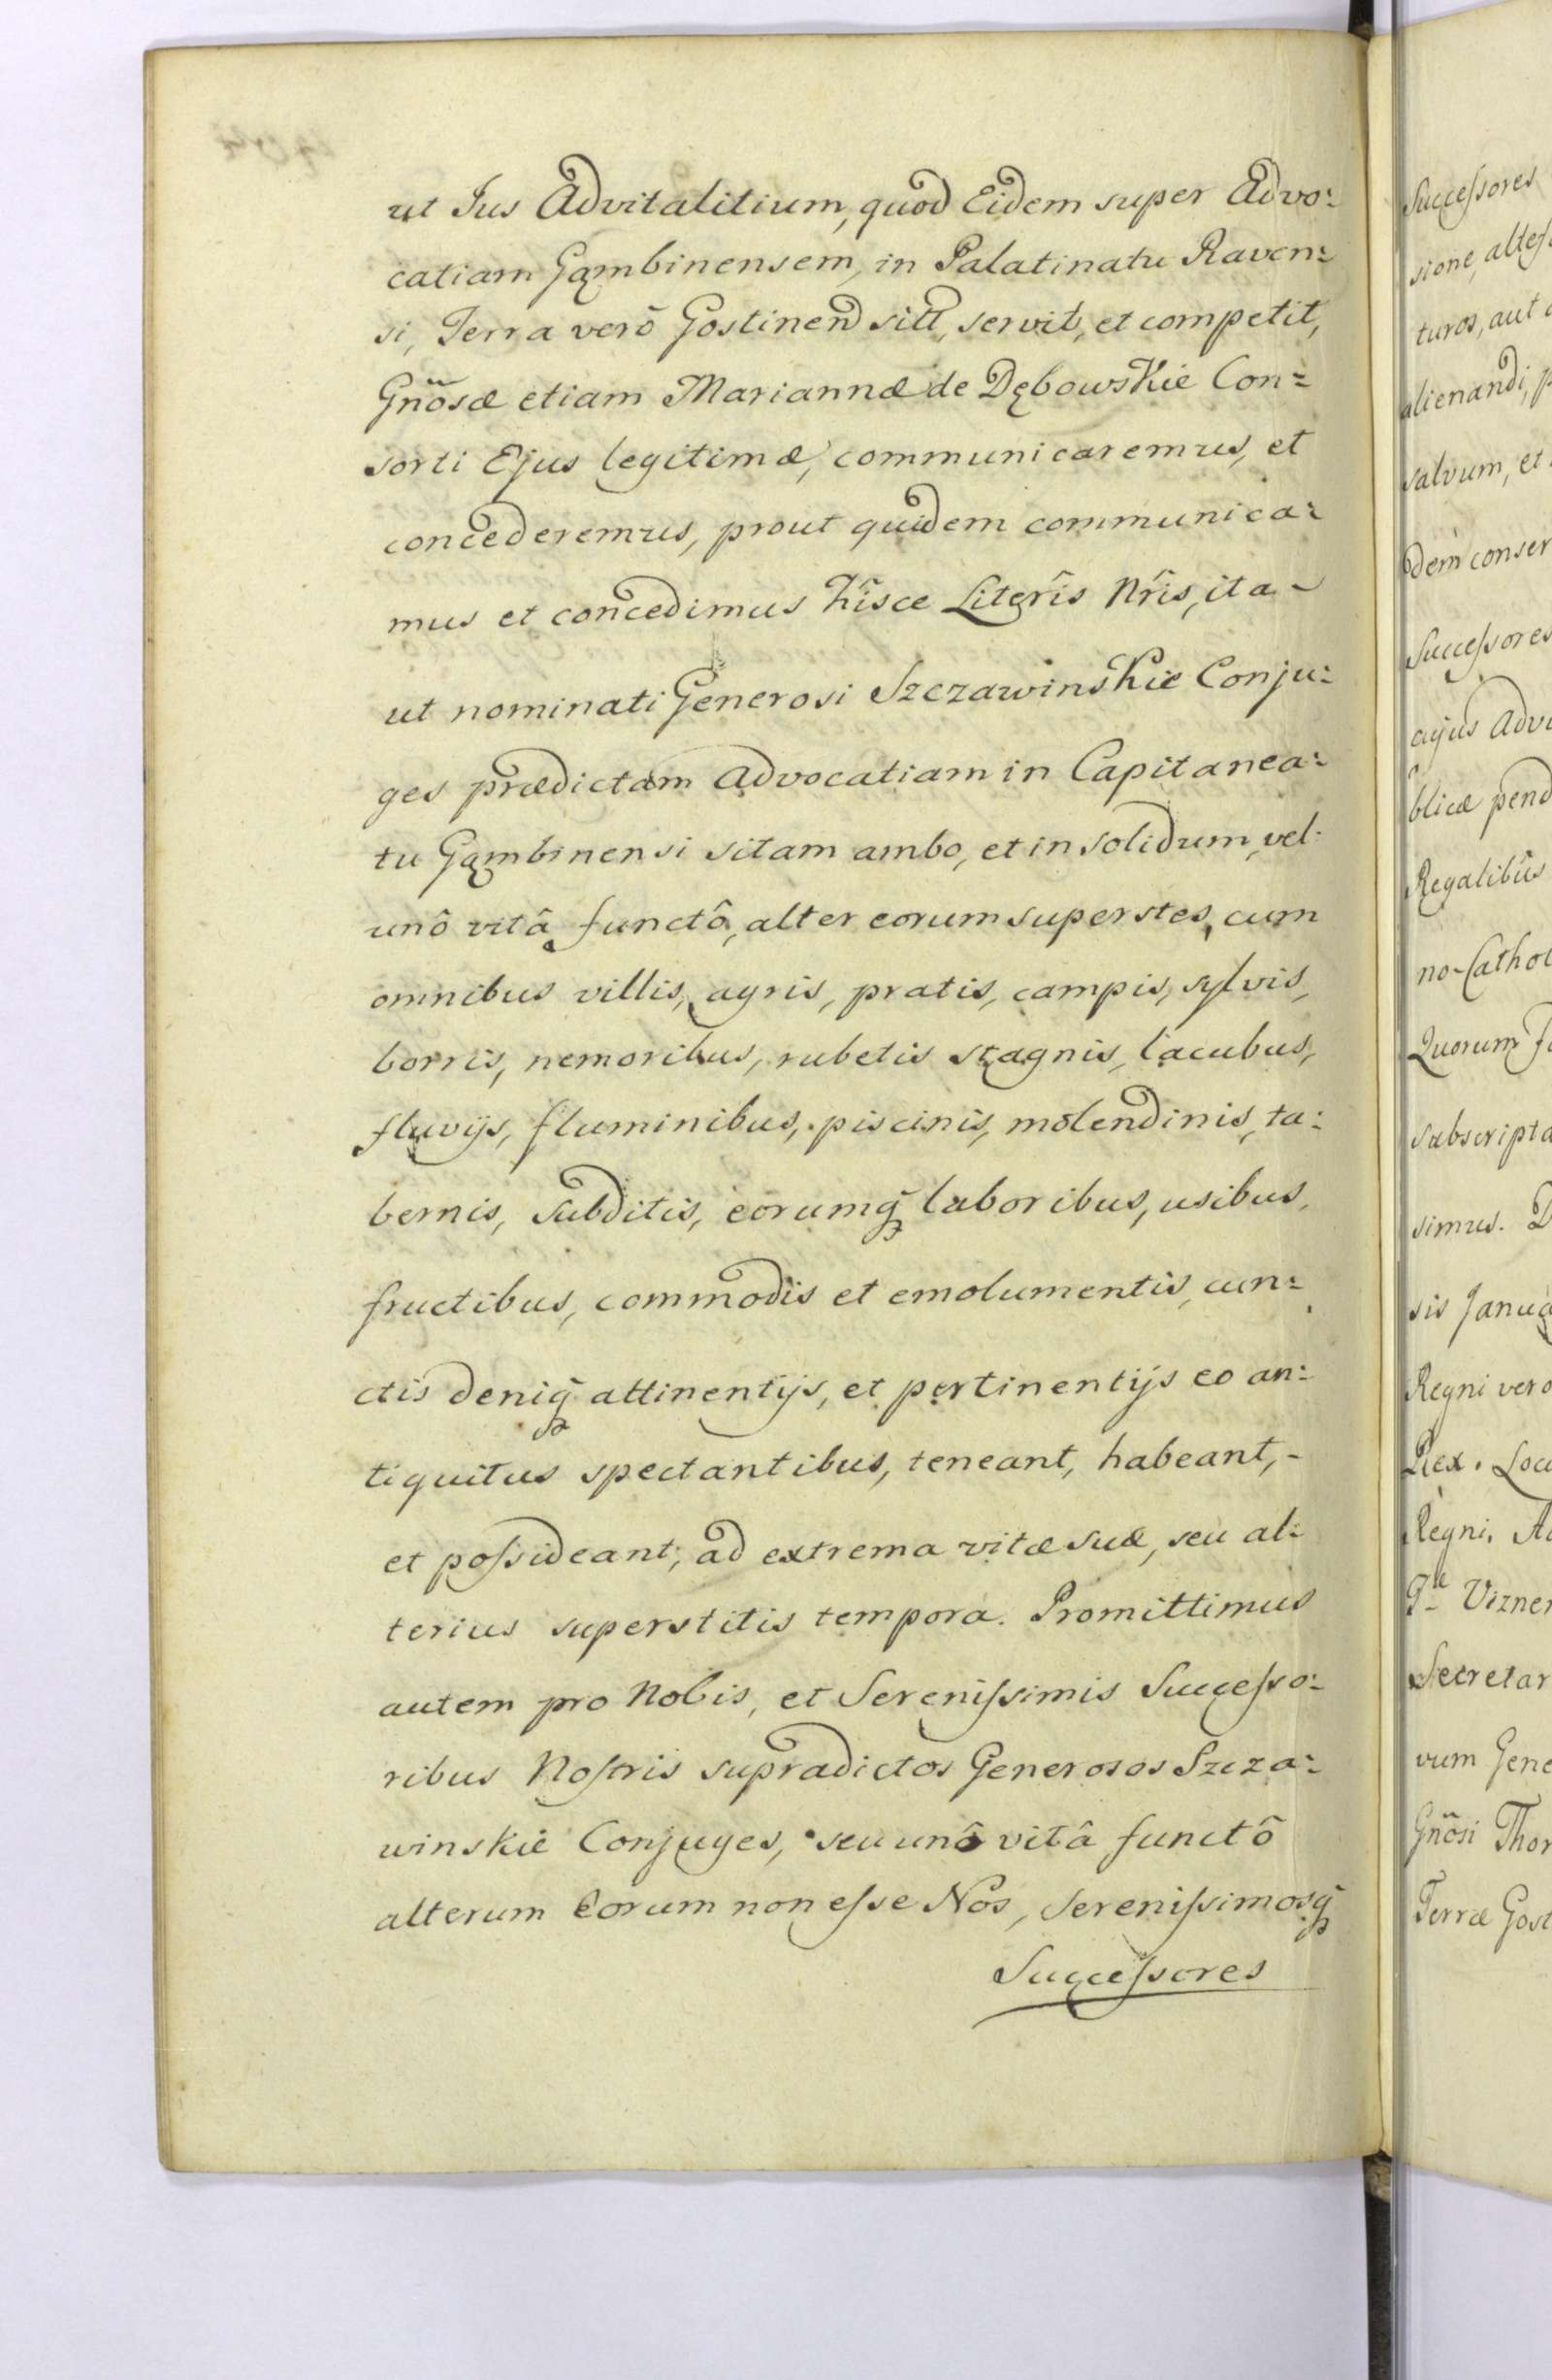 ut Jus Advitalitium, quod Eidem super Advo:
catiam Gąmbinensem, in Palatinatu Raven:
si, Terra verô Gostinen̄ sitt, servit, et competit,
Gñosæ etiam Mariannæ de Dębowskie Con=
sorti Ejus legitimæ, communicaremus, et
concederemus, prout quidem communica:
mus et concedimus hîsce Literîs Nr̂is, ita -
ut nominati Generosi Szczawinskie Conju:
ges prædictam Advocatiam in Capitanea:
tu Gąmbinensi sitam ambo, et in solidum, vel
unô vitâ functô, alter eorum superstes, cum
omnibus villis, agris, pratis, campis, sylvis,
borris, nemoribus, rubetis stagnis, lacubus,
fluvijs, fluminibus, piscinis, molendinis, ta:
bernis, Subditis, eorumq̃ laboribus, usibus,
fructibus, commodis et emolumentis, cun=
ctis deniq̃ attinentijs, et pertinentijs eo an:
tiquitus spectantibus, teneant, habeant, -
et poſsideant, ad extrema vitæ suæ, seu al:
terius superstitis tempora. Promittimus
autem pro Nobis, et Sereniſsimis Succeſso:
ribus Noſtris supradictos Generosos Szcza:
winskie Conjuges, seu unô vitâ functô
alterum Eorum non eſse Nos, Sereniſsimosq̃
Succeſsores
Succeſsores
sione,
turos, aut
alienandi,
salvum, et
dem conser
Succeſsores
cujus Advo
blicæ pend
Regalibûs
no-Cathol
Quorum
subscripta
simus. D
sis Janua
Regni vero
Rex. Locu
Regni.
Vizner
Secretar
vum Gene
Gñosi Thom
Terræ Gost